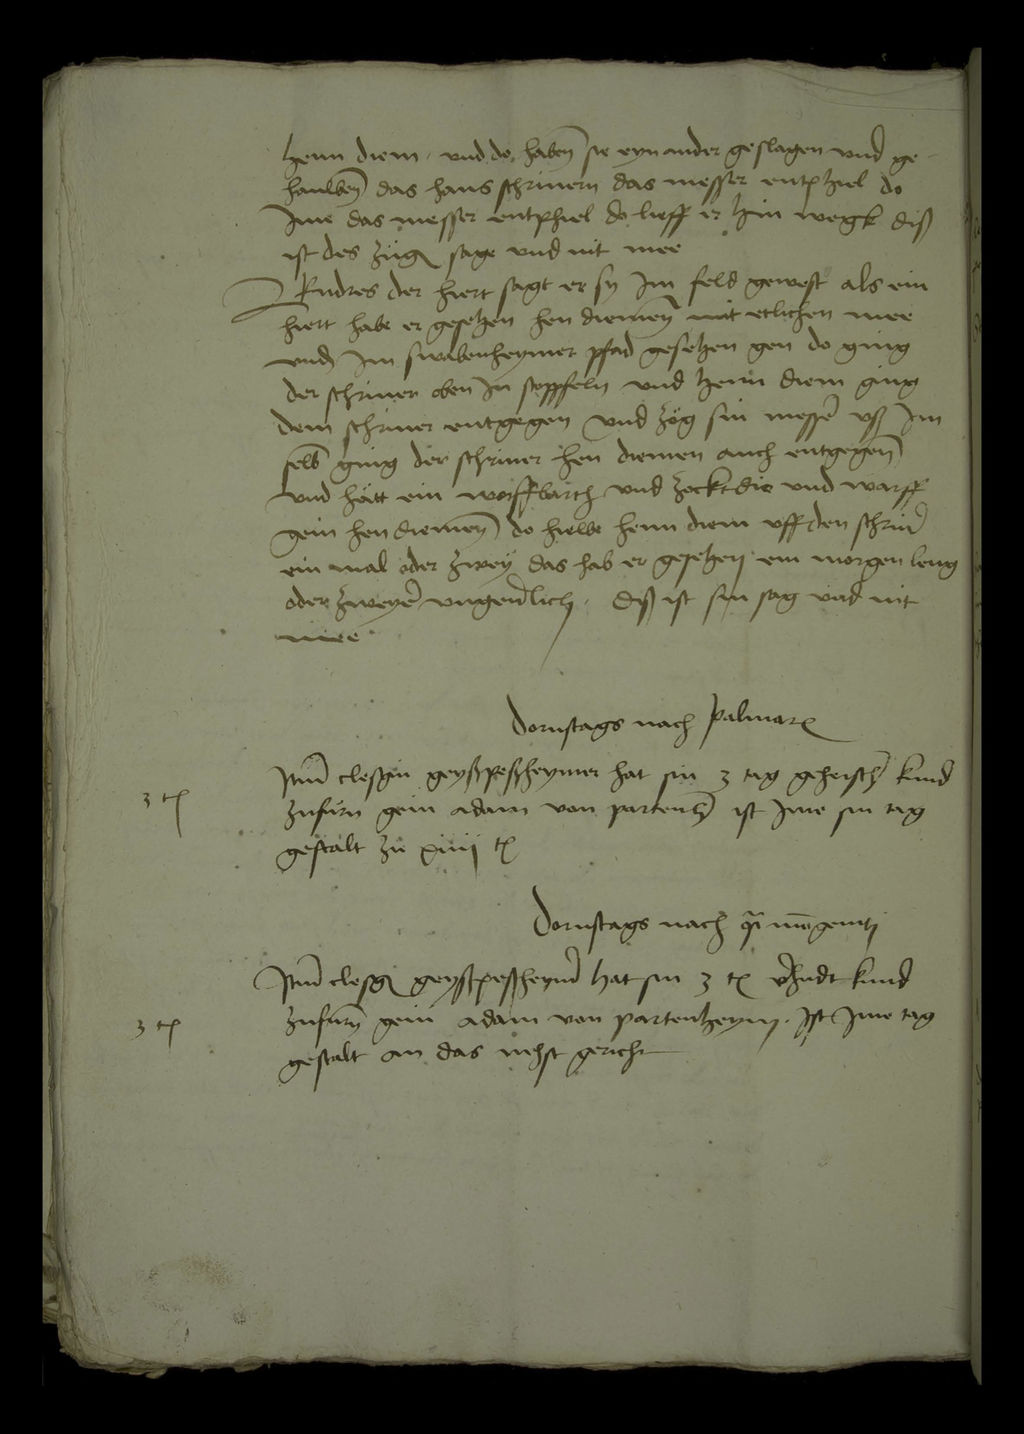 henn diem · und do haben sie eyn ander geslagen und ge
hauwen das hans schrinern das messer entphiel do
Ime das messer entphiel do lieff er hin wegk diß
ist des zugen sage und nit mee
Endres der hiert sagt er sy Im feld gewest als ein
hiert habe er gesehen hen diemen mit etlichen mee
und Im swabenheymer pfad gesehen gen do ging
der schriner oben In stoppfeln und henn diem ging
dem schriner entgegen und zog sin messer uß Im
selb ging der schriner hen diemen auch entgegen
und hatt ein worffbarth und zeckt die und warff
gein hen diemen do hiewe henn diem uff den schriner
ein mal oder zwey das hab er gesehen ein morgen leng
oder zweyer ungeverlich · diß ist sin sag und nit
mee
Dornstags nach palmar
Item clesgin geyßpeßheymer hat sin 3 tag geheischen kund
3 t
zufuren gein adam von partenheim ist Ime sin tag
gestalt zu xiiii t
Dornstags nach q̄i mōgeniti
Item clesgin geyßpeßheymer hat sin 3 t verkundt kund
3 t
zufuren gein adam von partenheym · Ist Ime tag
gestalt an das nehst gericht